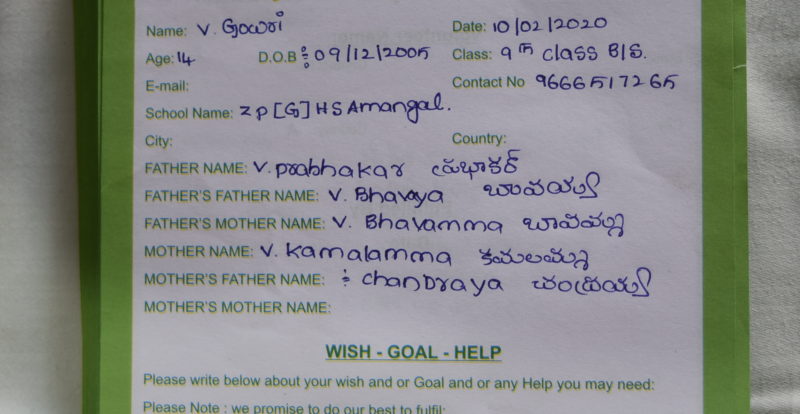 Name: V. Gowri Date: 10/02/2020
Age: 14 D.O.B : 09/12/2005 Class: 9th class B/S.
E-mail: Contact No 9666517265
School Name: Z P [G] H S Amangal.
City: Country:
FATHER NAME: V. prabhakar ప్రభాకర్
FATHER'S FATHER NAME: V. Bhavaya బావయ్య
FATHER'S MOTHER NAME: V. Bhavamma బావమ్మ
MOTHER NAME: V. Kamalamma కమలమ్మ
MOTHER'S FATHER NAME: : chandraya చంద్రయ్య
MOTHER'S MOTHER NAME:
WISH - GOAL - HELP
Please write below about your wish and or Goal and or any Help you may need:
Please Note : we promise to do our best to fulfil: